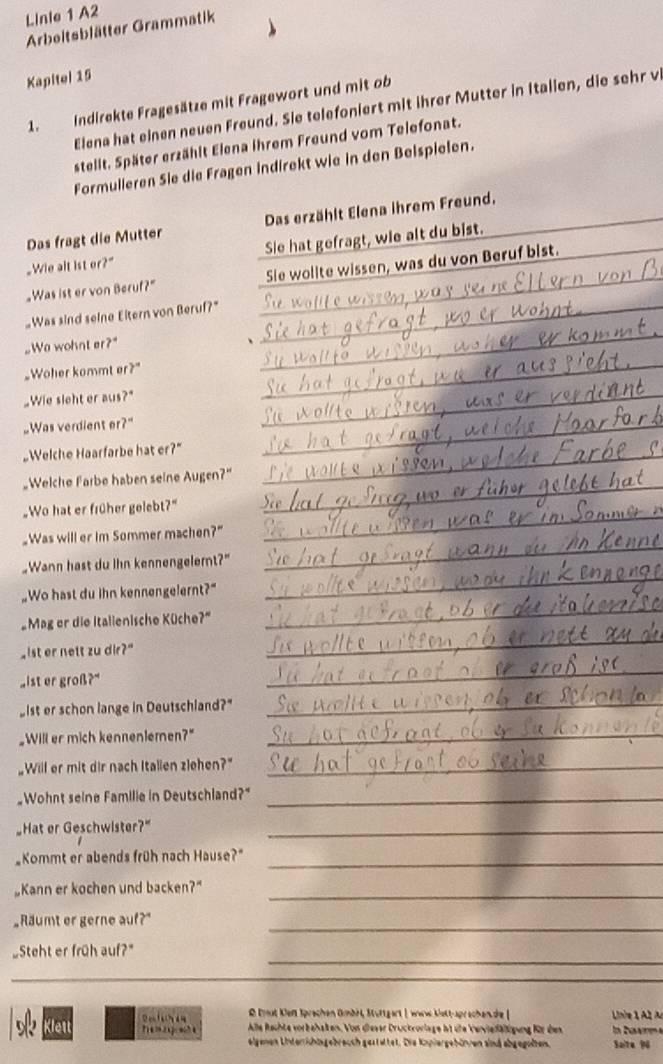 Linie 1 A2
Arbeitsblätter Grammatik
Kapitel 15
1. Indirekte Fragesätze mit Fragewort und mit ob
Elena hat einen neuen Freund. Sie telefoniert mit ihrer Mutter in Italien, die sehr vi
stellt. Später erzählt Elena ihrem Freund vom Telefonat.
Formulieren Sie die Fragen indirekt wie in den Beispielen.
Das fragt die Mutter
Das erzählt Elena ihrem Freund.
„Wie alt ist er?“
Sie hat gefragt, wie alt du bist.
„Was ist er von Beruf?“
Sie wollte wissen, was du von Beruf bist.
„Was sind seine Eltern von Beruf?“
Sie wollte wissen, was seine Eltern von Be
„Wo wohnt er?“
Sie hat gefragt, wo er wohnt.
„Woher kommt er?“
Sie wollte wissen, woher er kommt.
„Wie sieht er aus?“
Sie hat gefragt, wie er aussieht.
„Was verdient er?“
Sie wollte wissen, was er verdiант
„Welche Haarfarbe hat er?“
Sie hat gefragt, welche Haarfarb
„Welche Farbe haben seine Augen?“
Sie wollte wissen, welche Farbe s
„Wo hat er früher gelebt?“
Sie hat wo er früher gelebt hat
„Was will er im Sommer machen?“
Sie wollte wissen, was er im Sommer
„Wann hast du ihn kennengelernt?“
Sie hat gefragt wann du ihn Kenne
„Wo hast du ihn kennengelernt?“
Sie wollte wissen, wo du ihn kennenge
„Mag er die italienische Küche?“
Sie hat gefragt, ob er die italienisc
„Ist er nett zu dir?“
Sie wollte wissen, ob er nett zu di
„Ist er groß?“
Sie hat gefragt ob er groß ist
„Ist er schon lange in Deutschland?“
Sie wollte wissen, ob er schon lan
„Will er mich kennenlernen?“
Sie hat gefragt, ob er Sie kennenle
„Will er mit dir nach Italien ziehen?“
Sie hat gefragt, ob seine
„Wohnt seine Familie in Deutschland?“
„Hat er Geschwister?“
„Kommt er abends früh nach Hause?“
„Kann er kochen und backen?“
„Räumt er gerne auf?“
„Steht er früh auf?“
Klett
Deutsch als
Fremdsprache
© Ernst Klett Sprachen GmbH, Stuttgart | www.klett-sprachen.de |
Alle Rechte vorbehalten. Von dieser Druckvorlage ist die Vervielfältigung für den
eigenen Unterrichtsgebrauch gestattet. Die Kopiergebühren sind abgegolten.
Linie 1 A2 A
In Zusamme
Seite 96